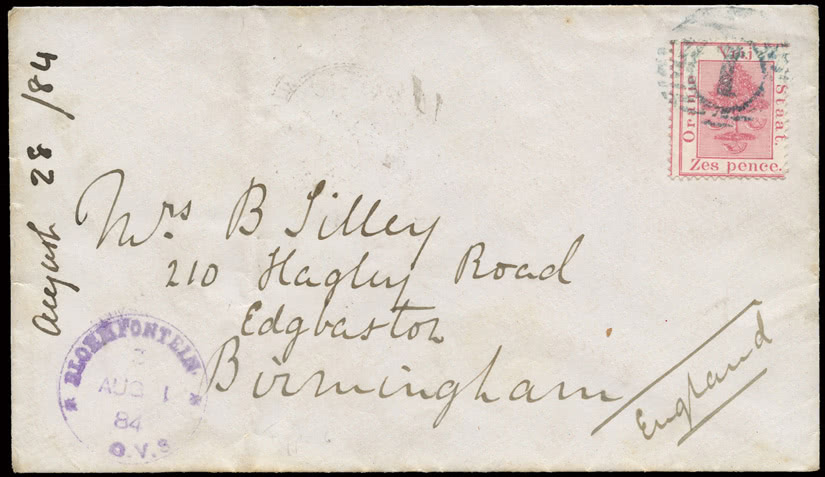 August 28 /84
Vrij
Oranje
Staat.
Zes pence.
1
Mrs B Tilley
210 Hagley Road
Edgbaston
Birmingham
England
* BLOEMFONTEIN. *
AUG 1
84
O.V.S